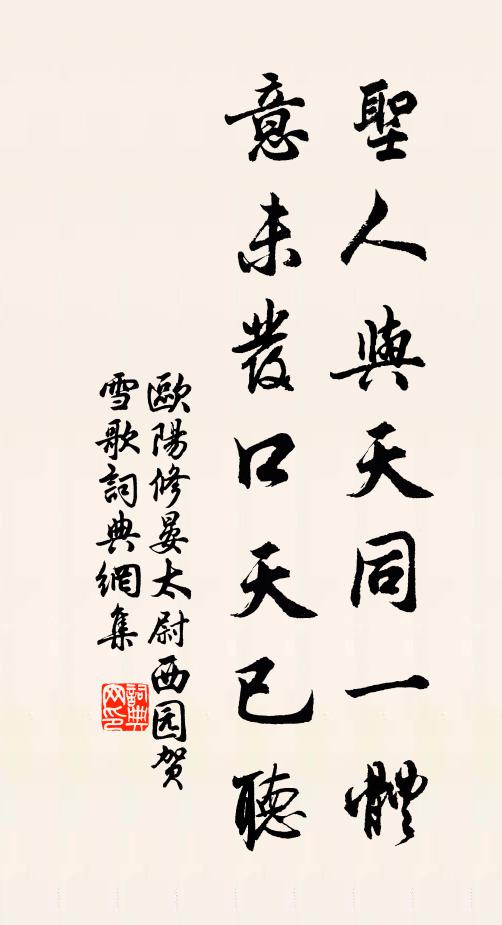 聖人與天同一體
意未發口天已聽
歐陽修晏太尉西园贺
雪歌詞典網集
詞典
网印